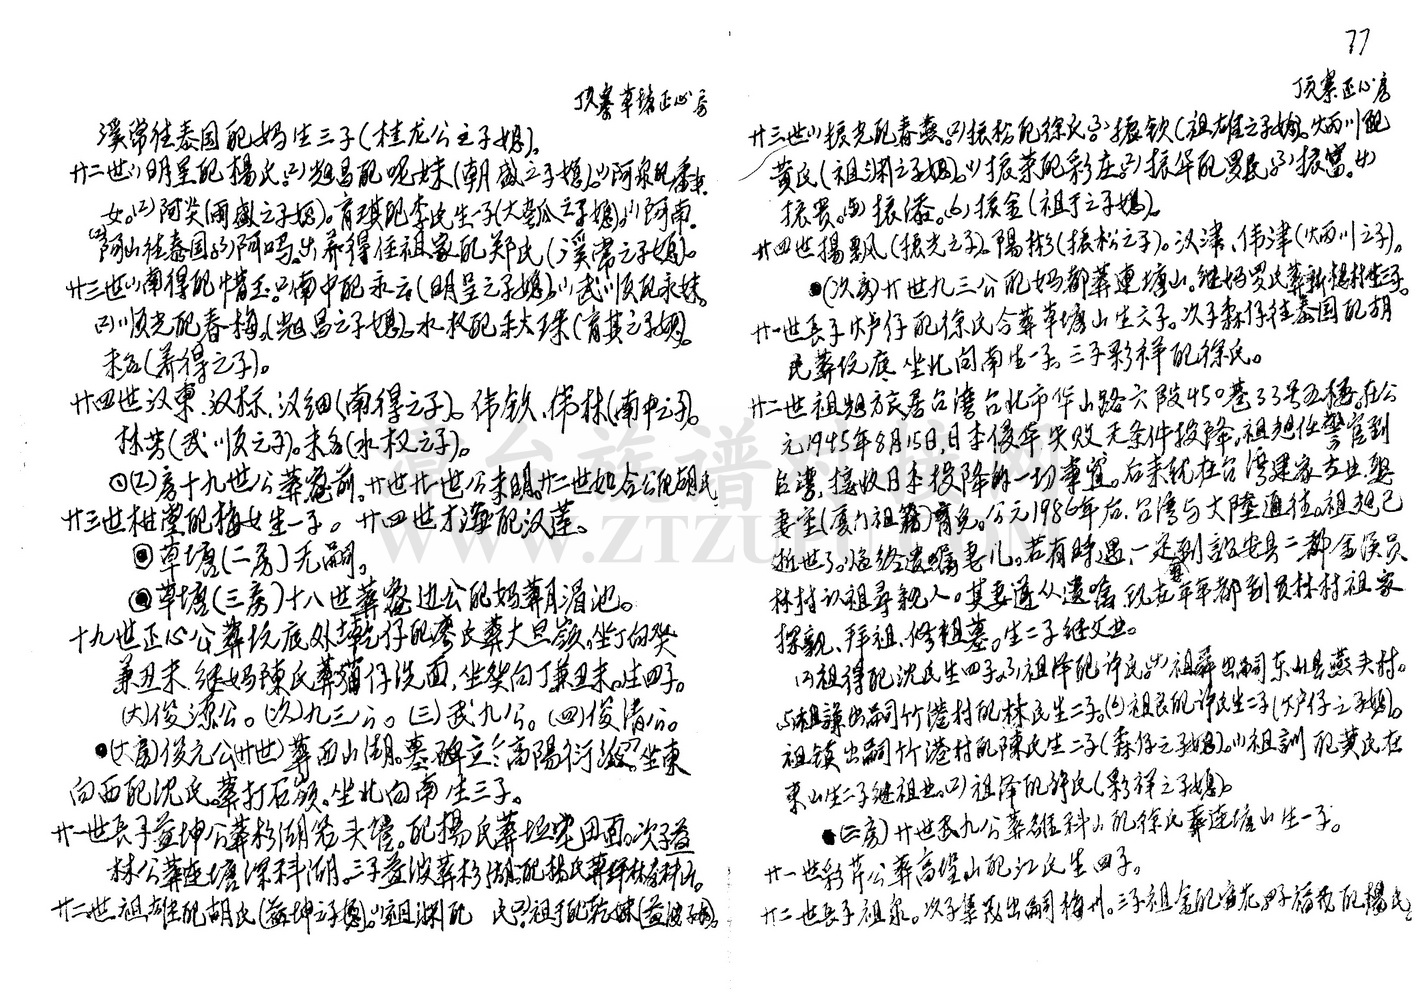 顶寨草塘正心房
溪常往泰国配妈生三子(桂龙公之子媳)。
廿二世⑴明呈配楊氏。⑵旭昌配呢妹(朝盛之子媳)。⑴阿泉配番
女。⑵阿炎(国盛之子媳)。育琪配李氏生一子(大 瓜之子媳)。⑴阿南。
⑵阿山往泰国。⑶阿吗。⑷养得任祖家配郑氏(溪常之子媳)。
廿三世⑴南得配惜玉。⑵南中配永云(明呈之子媳)。⑴武川顺配永妹。
⑵川顺光配春梅。(旭昌之子媳)。水权配禾大珠(育其之子媳)。
未名(养得之子)。
廿四世汉東、汉标、汉细(南得之子)。伟钦、伟林(南中之子)。
林芳(武川顺之子)。未名(水权之子)。
⑵房十九世公葬 前。廿世廿一世公未明。廿二世如合公配胡氏
廿三世桂堂配梅女生一子。廿四世才海配汉莲。
草塘(二房)无嗣。
草塘(三房)十八世葬 边公配妈葬月湄池。
十九世正心公葬坑底外埔乾仔配廖氏葬大旦嶺。坐丁向癸
兼丑未。继妈陳氏葬猫仔洗面,坐癸向丁兼丑未。生四子。
(大)俊源公。(次)九三公。(三)武九公。(四)俊清公。
(大房)俊元公(廿世)葬西山湖。墓碑立:高陽衍派。坐東
向西配沈氏。葬打石嶺。坐北向南生三子。
廿一世長子益坤公葬杉湖 头 。配楊氏葬 田面。次子益
林公葬连塘深科湖。三子益波葬杉湖配楊氏葬坪林 科山。
廿二世祖雄配胡氏(益坤之子媳)。⑴祖渊配 民⑵祖于配乾妹(益波子媳)。
77
顶寨正心房
廿三世⑴振光配春燕。⑵振松配徐氏⑶振钦(祖雄之子媳)。炳川配
黄氏(祖渊之子媳)。⑴振荣配彩庄⑵振华配罗氏⑶振富。⑷
振畏。⑸振添。⑹振金(祖于之子媳)。
廿四世揚飘(振光之子)。陽彬(振松之子)。汉津、伟津(炳川之子)。
(次房)廿世九三公配妈都葬連塘山。继妈罗氏葬新楊村生三子。
廿一世長子炉仔配徐氏合葬草塘山生六子。次子森仔往泰国配胡
氏葬坑底坐北向南生一子。三子彩祥配徐氏。
廿二世祖旭方氏居台湾台北市华山路六段450巷33号五楼。在公
元1945年8月15日,日本侵华失败无条件投降。祖旭任警官到
台湾,接收日本投降的一切事宜。后来就在台湾建家立业娶
妻室(厦门祖籍)育儿。公元1986年后,台湾与大陸通往。祖旭已
逝世了。临终遗嘱妻儿。若有時遇,一定要到詔安县二都金溪员
林村认祖尋親人。其妻遵从遗嘱,现在年年都到员林村祖家
探親、拜祖、修祖墓。生二子继父业。
⑵祖得配沈氏生四子。⑶祖泽配许氏。⑷祖舜出嗣东山县燕头村。
⑸祖謀出嗣竹港村配林氏生二子。⑹祖民配许氏生二子(炉仔之子媳)。
祖镇出嗣竹港村配陳氏生二子(森仔之子媳)。⑴祖訓配黄氏在
東山生二子继祖业。⑵祖泽配许氏(彩祥之子媳)。
(三房)廿世武九公葬雄科山配徐氏葬连塘山生一子。
廿一世彩芹公葬高埕山配江氏生四子。
廿二世長子祖泉。次子集茂出嗣梅州。三子祖金配 花四子福茂配楊氏。